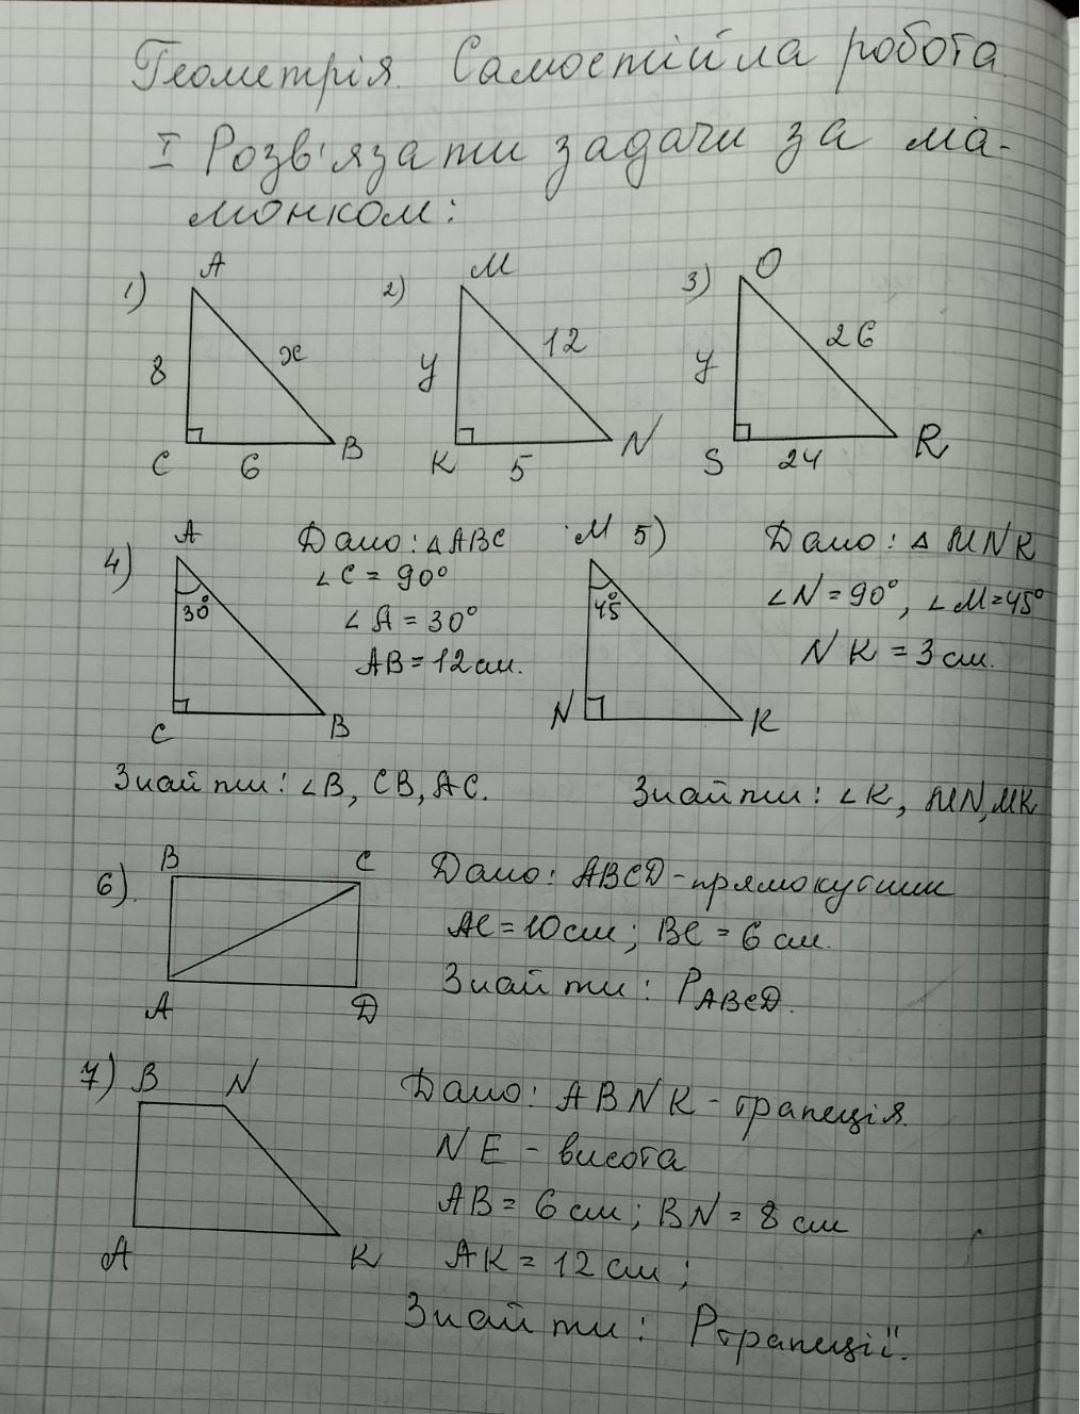 Геометрія. Самостійна робота.
I Розв'язати задачи за ма-
люнком:
1) A 8 x C 6 B
2) M y 12 K 5 N
3) O y 26 S 24 R
4) A 30° C B
Дано: △ABC
∠C = 90°
∠A = 30°
AB = 12 см.
Знайти: ∠B, CB, AC.
5) M 45° N K
Дано: △MNK
∠N = 90°, ∠M = 45°
NK = 3 см.
Знайти: ∠K, MN, MK
6) B C A D
Дано: ABCD - прямокутник
AC = 10 см; BC = 6 см.
Знайти: PABCD.
7) B N A K
Дано: ABNK - трапеція.
NE - висота
AB = 6 см; BN = 8 см
AK = 12 см;
Знайти: Pтрапеції.